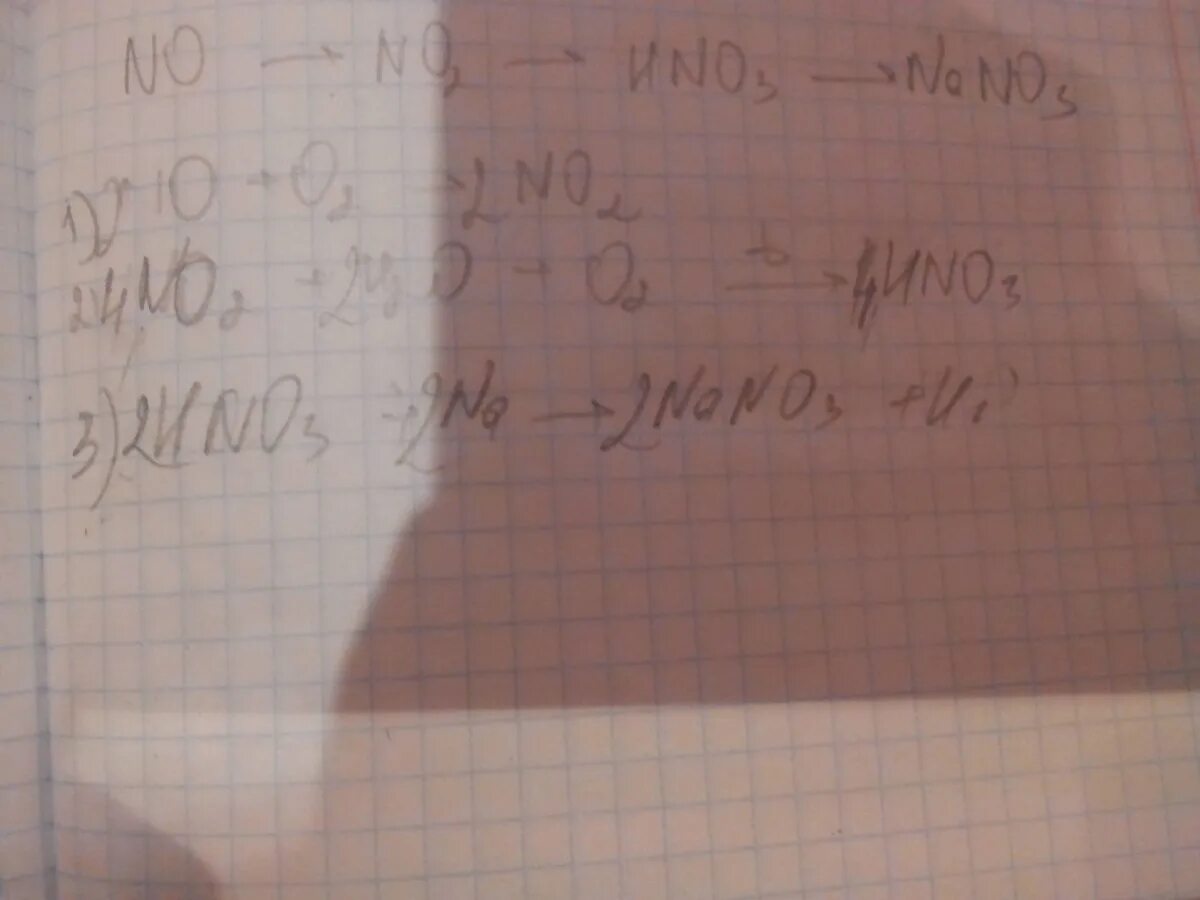 NO → NO₂ → HNO₃ → NaNO₃
1) O + O₂ → 2NO₂
2) 4NO₂ + 2H₂O + O₂ → 4HNO₃
3) 2HNO₃ + 2Na → 2NaNO₃ + H₂